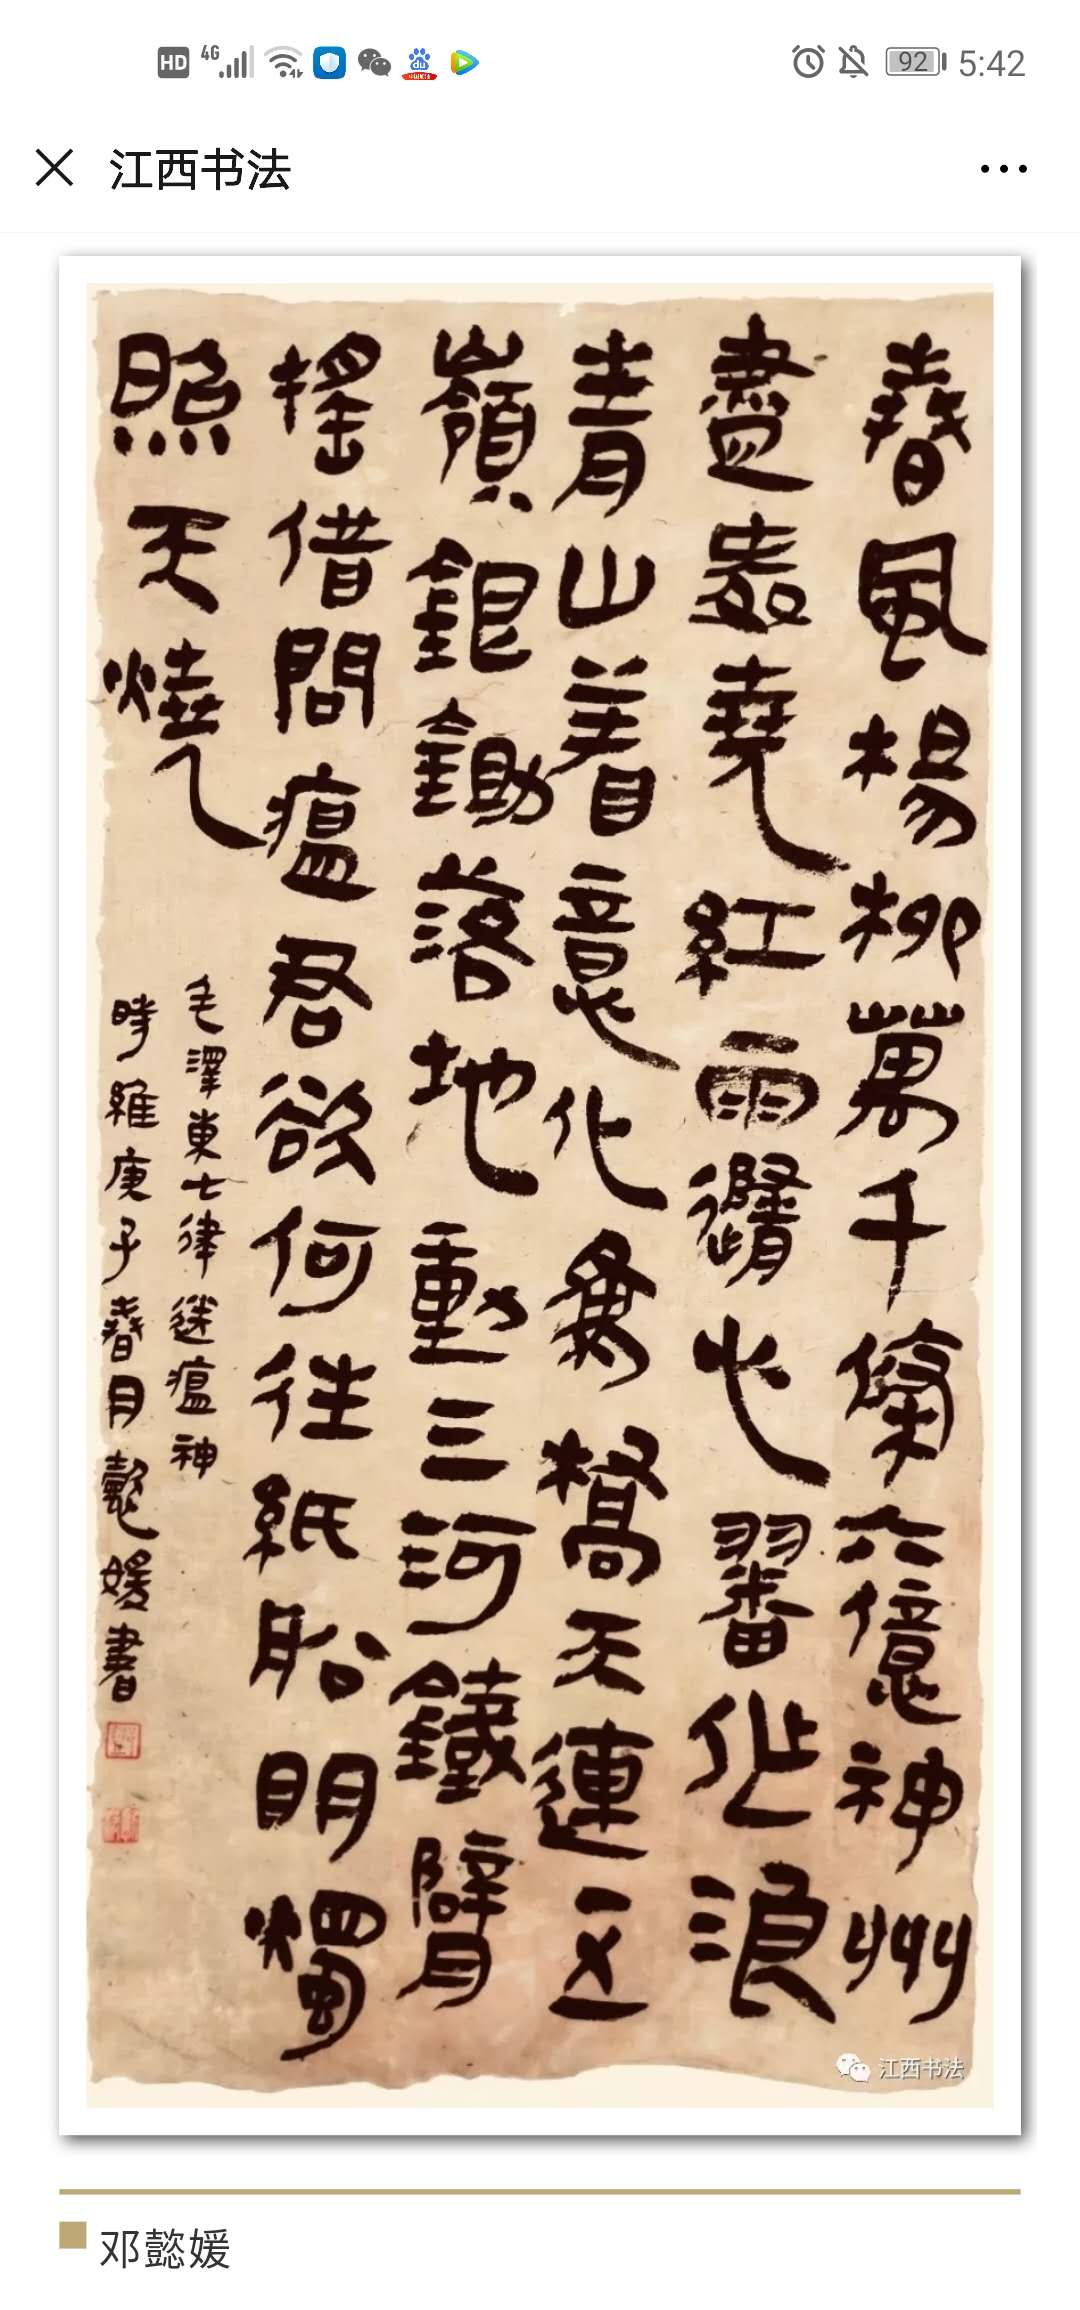 HD 4G 92 5:42
江西书法
春風楊柳萬千條六億神州
盡舜堯紅雨隨心翻作浪
青山着意化為橋天連五
嶺銀鋤落地動三河鐵臂
搖借問瘟君欲何往紙船明燭
照天燒
毛澤東七律送瘟神
時維庚子春月懿媛書
江西书法
邓懿媛